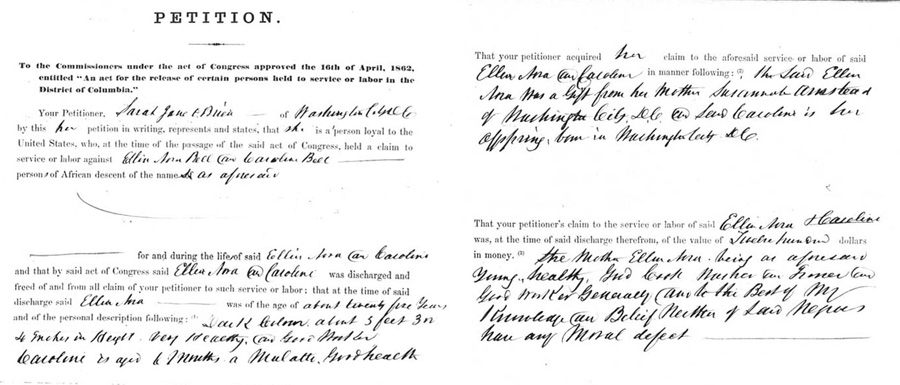 PETITION.
To the Commissioners under the act of Congress approved the 16th of April, 1862,
entitled "An act for the release of certain persons held to service or labor in the
District of Columbia."
Your Petitioner, Sarah Jane O Brien of Washington City D C
by this her petition in writing, represents and states, that she is a person loyal to the
United States, who, at the time of the passage of the said act of Congress, held a claim to
service or labor against Ellen Nora Bell and Caroline Bell
persons of African descent of the names as aforesaid
for and during the life of said Ellen Nora and Caroline
and that by said act of Congress said Ellen Nora and Caroline was discharged and
freed of and from all claim of your petitioner to such service or labor; that at the time of said
discharge said Ellen Nora was of the age of about twenty five Years
and of the personal description following: (1) Dark Colour about 5 feet 3 or
4 Inches in Height. Very Healthy, and Good Worker
Caroline is aged 6 Months a Mulatto. Good health
That your petitioner acquired her claim to the aforesaid service or labor of said
Ellen Nora and Caroline in manner following: (2) The Said Ellen
Nora was a Gift from her Mother Susannah Armstead
of Washington City, D.C. and Said Caroline is her
offspring, born in Washington City D.C.
That your petitioner's claim to the service or labor of said Ellen Nora & Caroline
was, at the time of said discharge therefrom, of the value of Twelve hundred dollars
in money. (3) The Mother Ellen Nora being as aforesaid
Young, healthy, Good Cook Washer and Ironer and
Good worker Generally, and to the Best of My
Knowledge and Belief Neither of Said Negroes
have any Moral defect